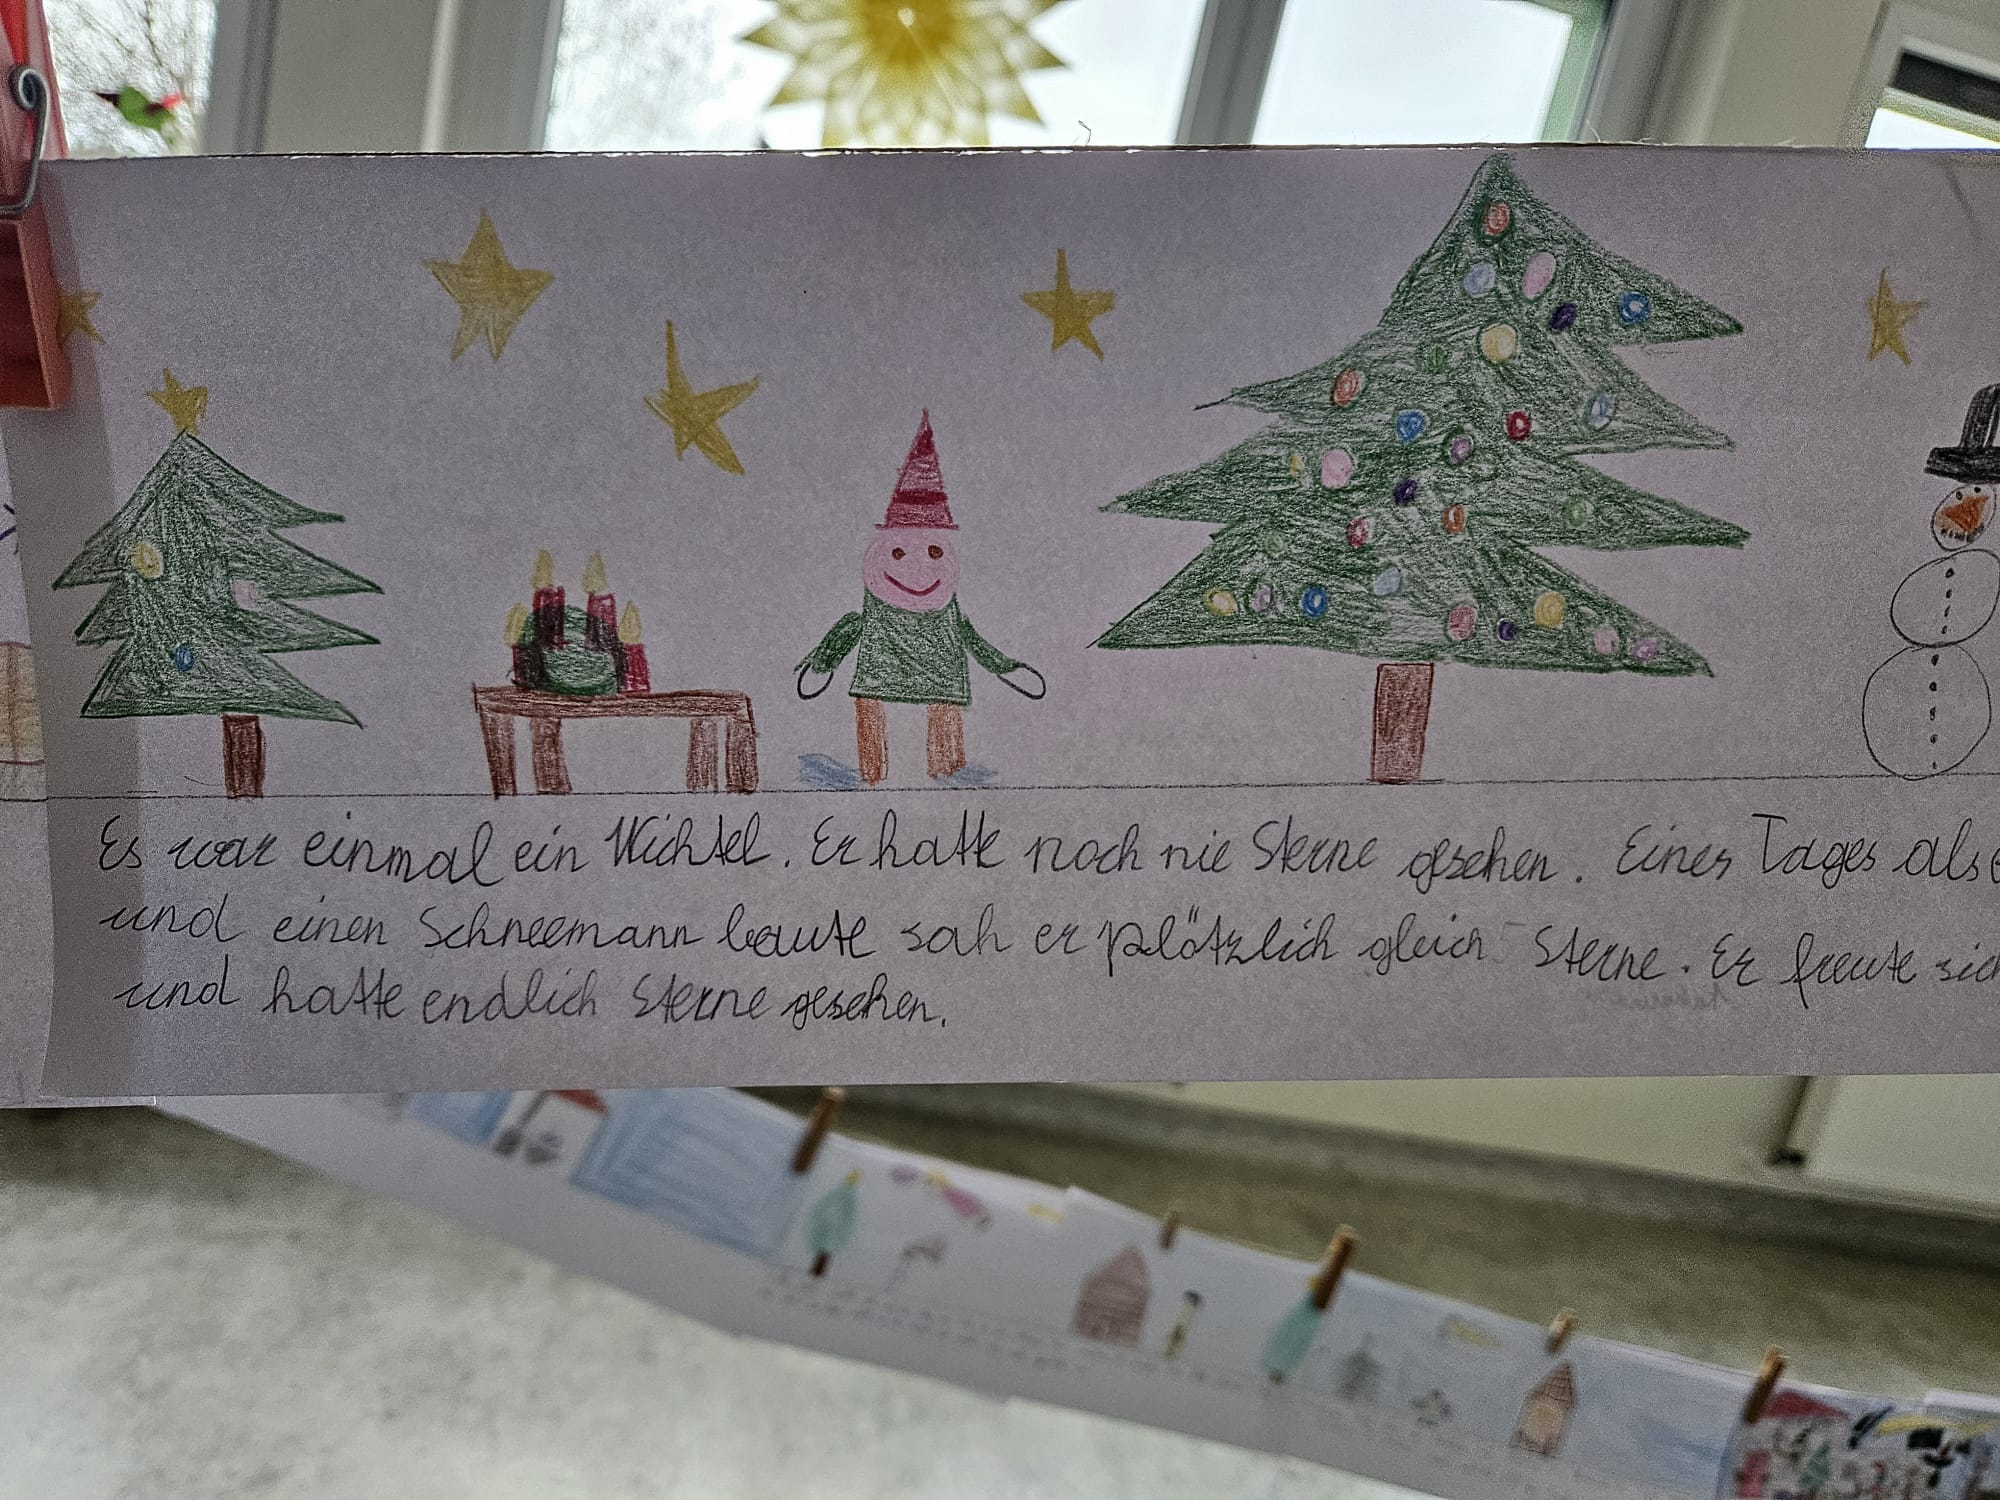 Es war einmal ein Wichtel. Er hatte noch nie Sterne gesehen. Eines Tages als
und einen Schneemann baute sah er plötzlich gleich Sterne. Er freute sich
und hatte endlich Sterne gesehen.